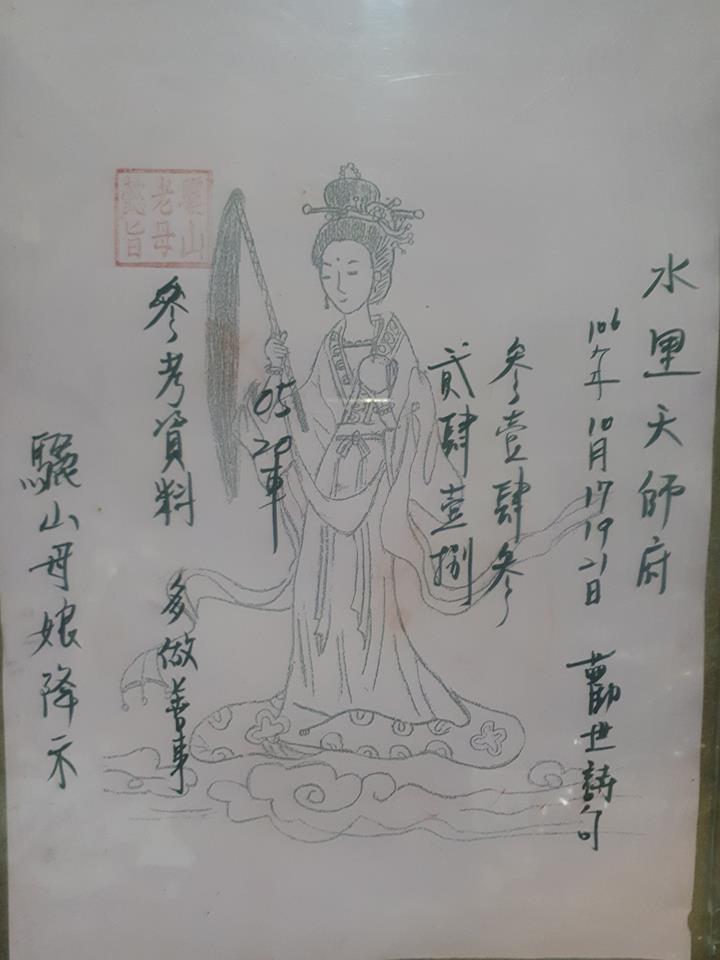 水里天師府
106年10月17 19 21日 勸世詩句
參壹肆參
貳肆壹捌
05 20車
參考資料 多做善事
驪山母娘降示
驪山老母懿旨